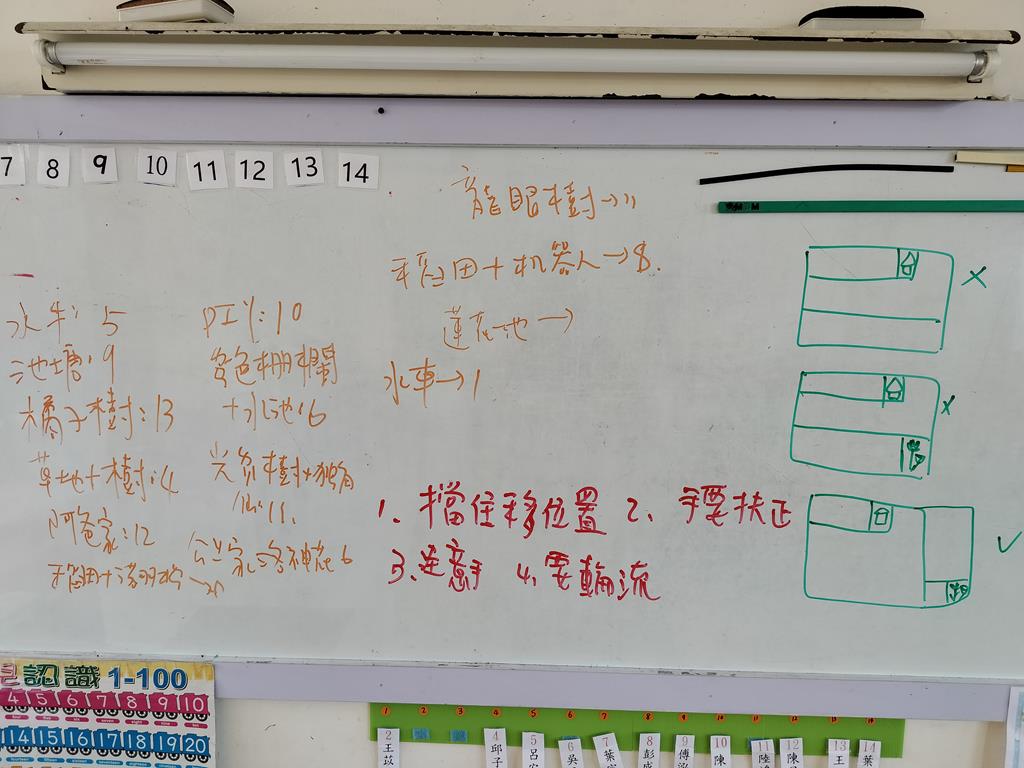 7 8 9 10 11 12 13 14
龍眼樹→11
稻田+机器人→8.
蓮花池→
水車→1
水牛:5
池塘:9
橘子樹:13
草地+樹:4
阿爸家:12
稻田+
DIY:10
各色柵欄
+水池:6
樹+獨角
仙:11.
1、擋住移位置 2、手要扶正
3、注意手 4、要輪流
認識1-100
4 5 6 7 8 9 10
14 15 16 17 18 19 20
1 2 3 4 5 6 7 8 9 10 11 12 13 14
2 王苡
4 邱子
5 呂
6 吳
7 葉
8 彭
9 傅
10 陳
11 陸
12 陳
13 王
14 葉